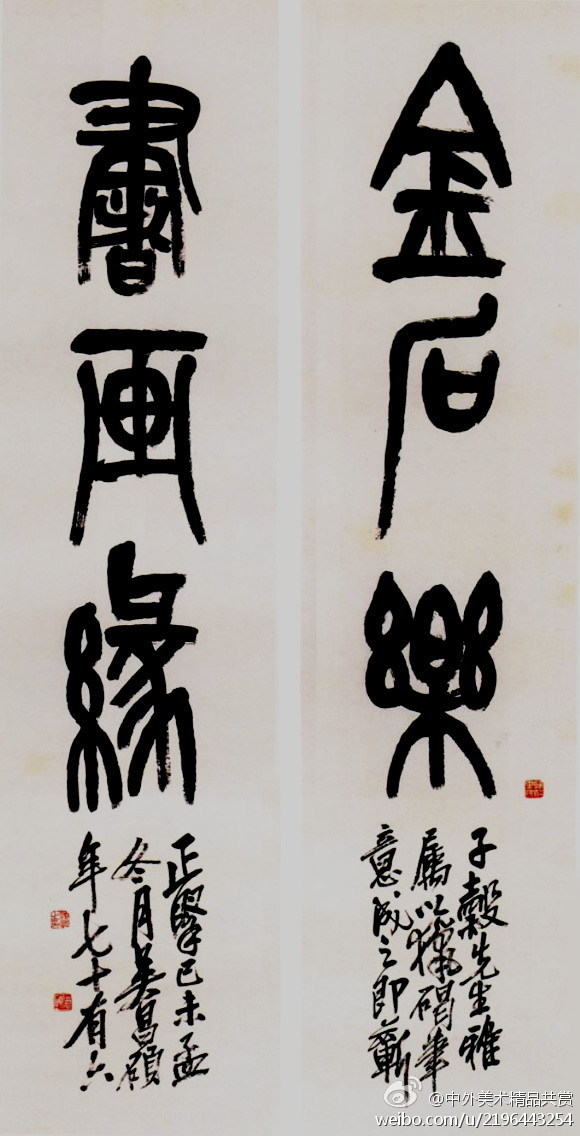 金石樂
子穀先生雅
屬以獵碣筆
意成之即蘄
書画緣
正擘己未孟
冬月吴昌碩
年七十有六
@中外美术精品共赏
weibo.com/u/2196443254